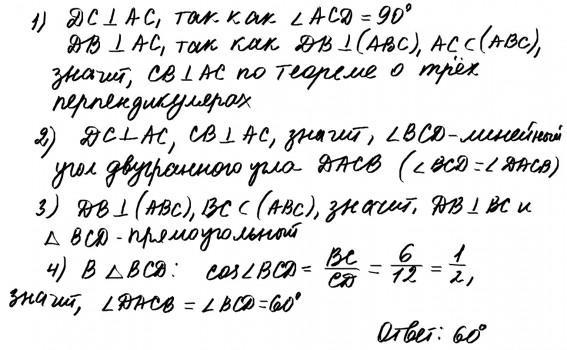 1) DC⊥AC, так как ∠ACD=90°
DB⊥AC, так как DB⊥(ABC), AC⊂(ABC),
значит, CB⊥AC по теореме о трёх
перпендикулярах
2) DC⊥AC, CB⊥AC, значит, ∠BCD-линейный
угол двугранного угла DACB (∠BCD=∠DACB)
3) DB⊥(ABC), BC⊂(ABC), значит, DB⊥BC и
△BCD-прямоугольный
4) В △BCD: cos∠BCD = BC/CD = 6/12 = 1/2,
значит, ∠DACB = ∠BCD=60°
Ответ: 60°